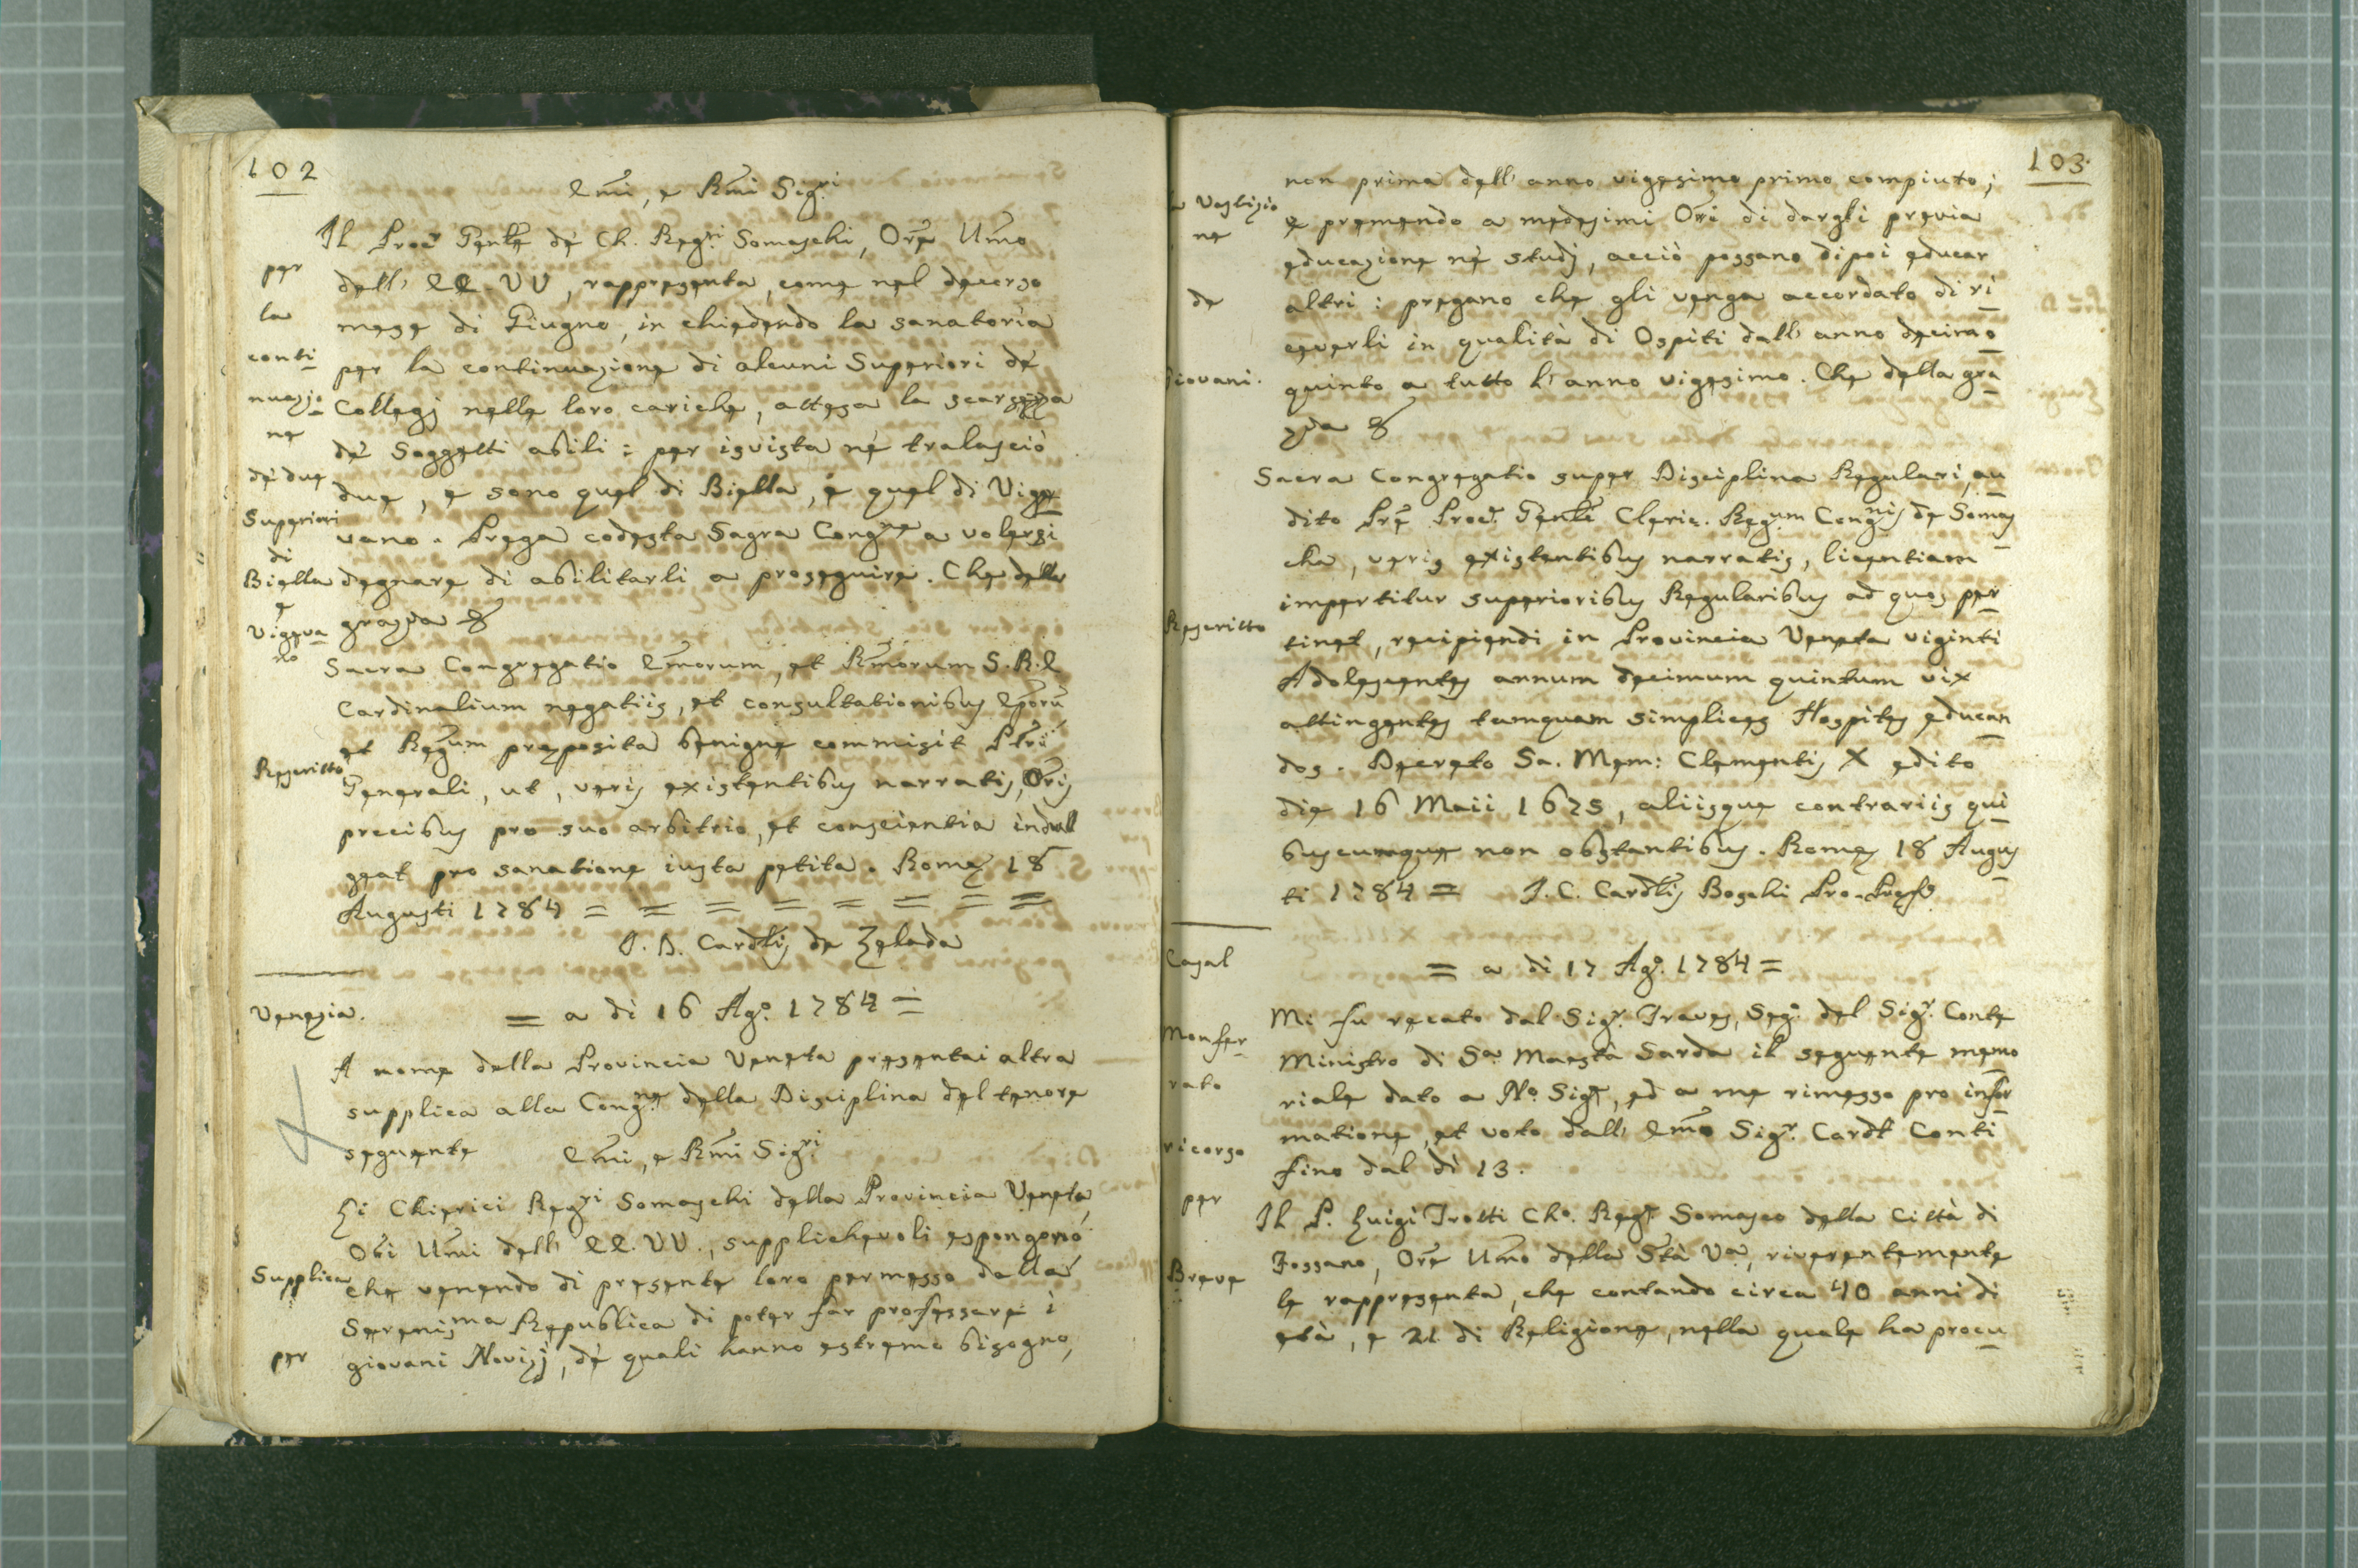 102
Emi, e Rmi Sigri
Il Procr Genle de' Ch. Regri Somaschi, Ore Umo
dell' EE. VV, rappresenta, come nel decorso
mese di Giugno, in chiedendo la sanatoria
per la continuazione di alcuni Superiori de'
Collegj nelle loro cariche, attesa la scarsezza
de' Soggetti abili: per isvista ne tralasciò
due, e sono quel di Biella, e quel di Vige
vano. Prega codesta Sagra Congne a volersi
degnare di abilitarli a proseguire. Che della
grazia &
per
la
conti
nuazio
ne
de' due
Superiori
di
Biella
e
Vigeva
no
Sacra Congregatio Emorum, et Rmorum S. R. E
Cardinalium negotiis, et consultationibus Eporu
et Regum preposita benigne commisit Pri
Generali, ut, veris existentibus narratis, Oris
precibus pro suo arbitrio, et conscientia indul
geat pro sanatione iuxta petita. Rome 18
Augusti 1784 = = = = = = = =
Rescritto
Cardlis de Zelada
Venezia.
= a dì 16 Ago. 1784 =
A nome della Provincia Veneta presentai altra
supplica alla Congne della Disciplina del tenore
seguente Emi, e Rmi Sigri
Li Chierici Regri Somaschi della Provincia Veneta,
Ori Umi dell' EE. VV., supplichevoli espongono
che venendo di presente loro permesso dalla
Serenisma Republica di poter far professare i
giovani Novizj, de' quali hanno estremo bisogno,
Supplica
per
103.
non prima dell' anno vigesimo primo compiuto;
e premendo a medesimi Ori di dargli previa
educazione ne' studj, acciò possano dipoi educar
altri: pregano che gli venga accordato di ri
ceverli in qualità di Ospiti dall' anno decimo
quinto a tutto l' anno vigesimo. Che della gra
zia &
la Vestizio
ne
de
Giovani.
Sacra Congregatio super Disciplina Regulari, au
dito Pre Procr. Genle Cleric. Regum Congnis de Somas
cha, veris existentibus narratis, licentiam
impertitur superioribus Regularibus ad quos per
tinet, recipiendi in Provincia Veneta viginti
Adolescentes annum decimum quintum vix
attingentes tamquam simplices Hospites educan
dos. Decreto Sa. Mem: Clementis X edito
die 16 Maii 1675, aliisque contrariis qui
buscumque non obstantibus. Rome 18 Augus
ti 1784 = I. C. Cardlis Boschi Pro-Prefs
Rescritto
Casal
Monfer
rato
ricorso
per
Breve
= a dì 17 Ago. 1784 =
Mi fu recato dal Sigr. Traves, Sego. del Sigr. Conte
Ministro di Sa. Maestà Sarda il seguente memo
riale dato a No. Sigr, ed a me rimesso pro infor
matione, et voto dall' Emo Sigr. Cardl Conti
fino dal dì 13.
Il P. Luigi Trotti Cho. Regr. Somasco della Città di
Fossano, Ore Umo della Stà Va, riverentemente
le rappresenta, che contando circa 40 anni di
età, e 21 di Religione, nella quale ha procu